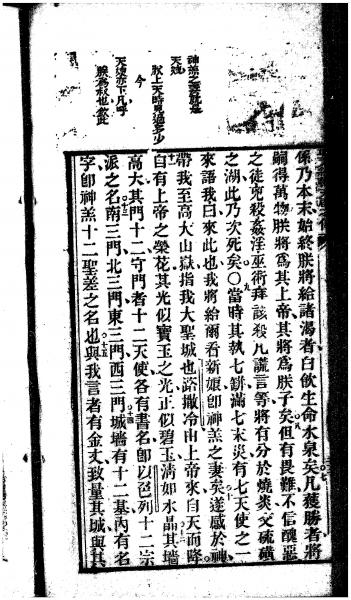 神羔之妻就是
天媳
朕上天時見過多少
今
天媳亦下凡呼
朕為叔也欽此
係乃本末始終朕將給諸渴者白飲生命水泉矣凡獲勝者將
嗣得萬物朕將為其上帝其將為朕子矣但有畏難不信醜惡
之徒兇殺姦淫巫術拜該殺凡謊言等將有分於燒炎交硫磺
之湖此乃次死矣〇當時其執七缾滿七末災有七天使之一
來語我曰來此也我將給爾看新娘卽神羔之妻矣遂感於神
帶我至高大山嶽指我大聖城也路撒冷由上帝來自天而降
自有上帝之榮花其光似寶玉之光正似碧玉清如水晶其墻
高大其門十二守門者十二天使各有書名卽以色列十二宗
派之名南三門北三門東三門西三門城墻有十二基內有名
字卽神羔十二聖差之名也與我言者有金丈致量其城與其